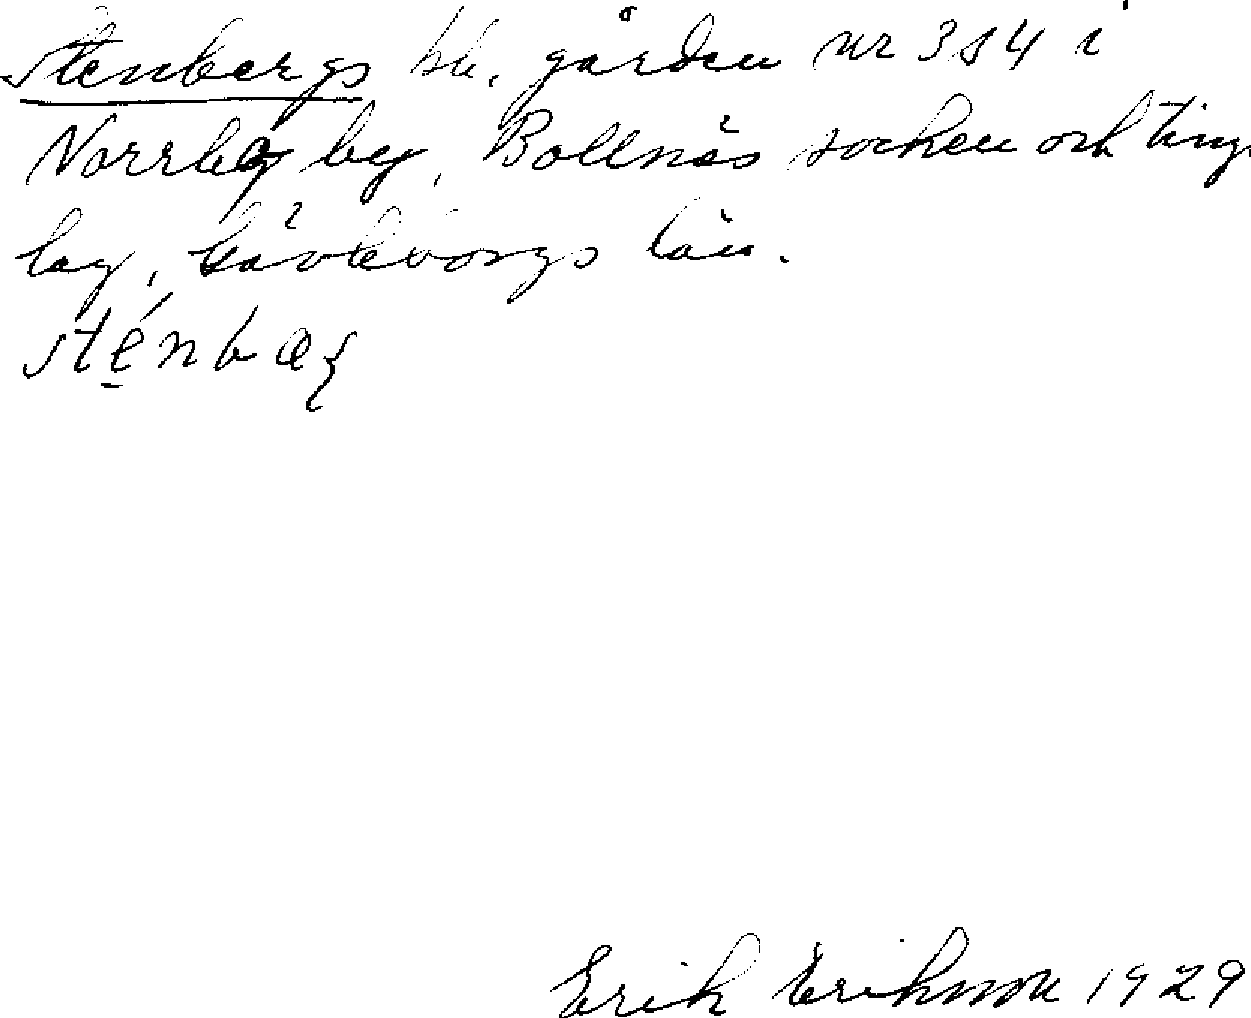 Stenbergs kk. gården nr 3 s 4 i
Norrbo by, Bollnäs socken och tings
lag, Gävleborgs län.
sténbæ
Erik Eriksson 1929